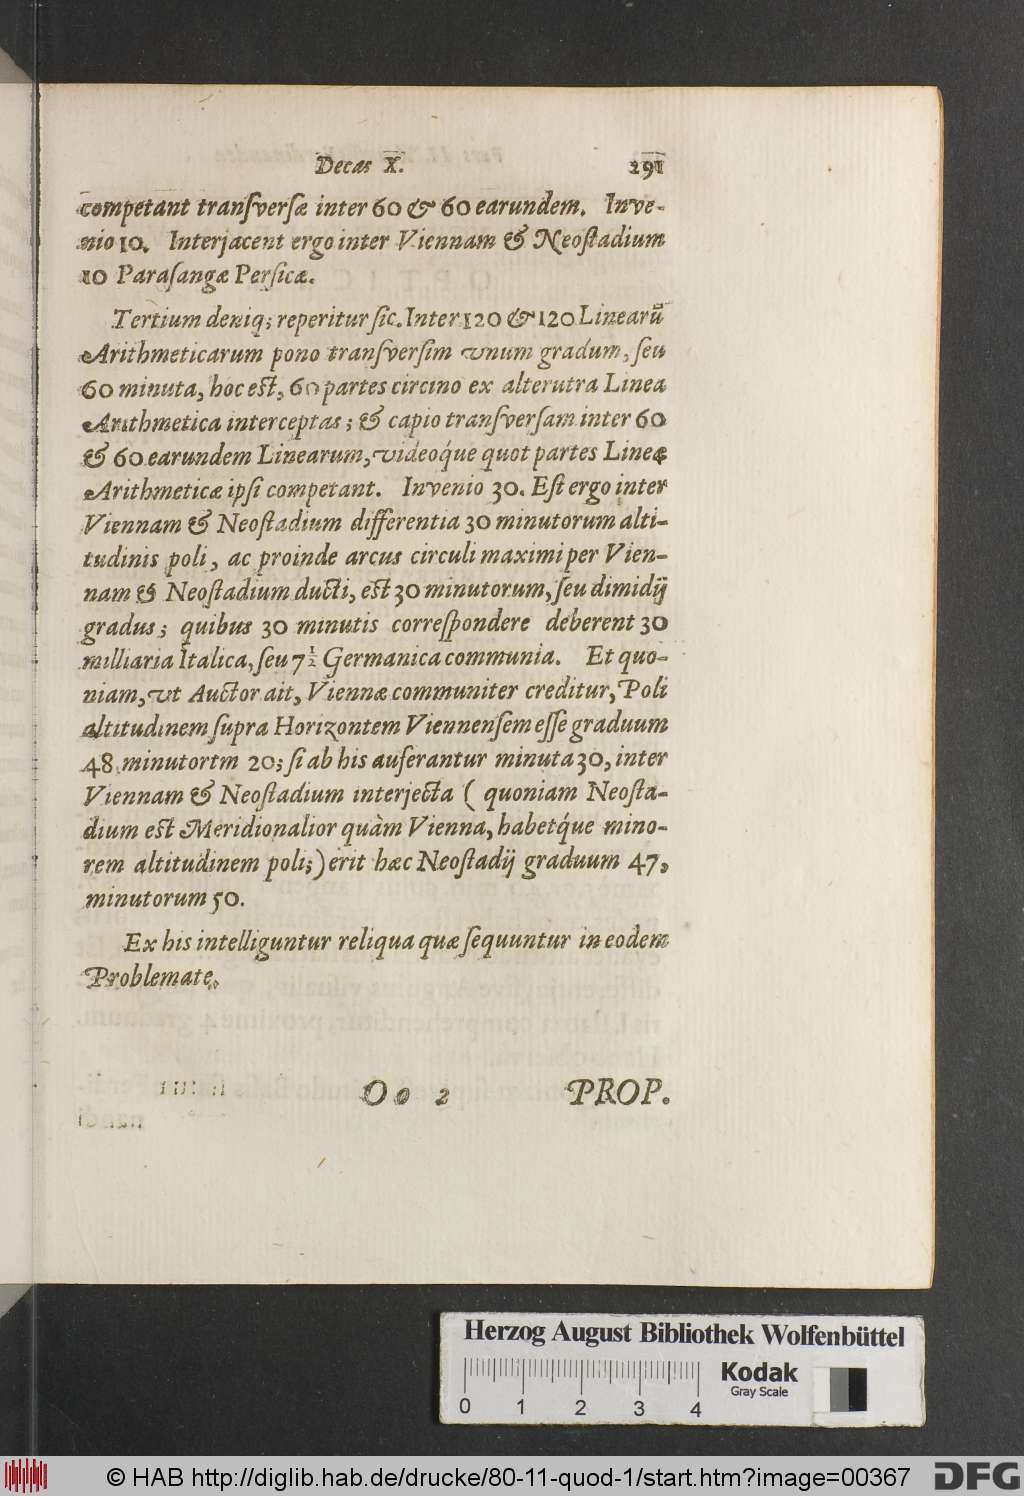 Decas X. 291
competant transversæ inter 60 & 60 earundem. Inve-
nio 10. Interjacent ergo inter Viennam & Neostadium
10 Parasangæ Persicæ.
Tertium deniq; reperitur sic. Inter 120 & 120 Linearū
Arithmeticarum pono transversim vnum gradum, seu
60 minuta, hoc est, 60 partes circino ex alterutra Linea
Arithmetica interceptas; & capio transversam inter 60
& 60 earundem Linearum, videoq́ue quot partes Lineæ
Arithmeticæ ipsi competant. Invenio 30. Est ergo inter
Viennam & Neostadium differentia 30 minutorum alti-
tudinis poli, ac proinde arcus circuli maximi per Vien-
nam & Neostadium ducti, est 30 minutorum, seu dimidij
gradus; quibus 30 minutis correspondere deberent 30
milliaria Italica, seu 7 1/2 Germanica communia. Et quo-
niam, vt Auctor ait, Viennæ communiter creditur, Poli
altitudinem supra Horizontem Viennensem esse graduum
48 minutortm 20; si ab his auferantur minuta 30, inter
Viennam & Neostadium interjecta ( quoniam Neosta-
dium est Meridionalior quàm Vienna, habetq́ue mino-
rem altitudinem poli;) erit hæc Neostadij graduum 47,
minutorum 50.
Ex his intelliguntur reliqua quæ sequuntur in eodem
Problemate.
Oo 2 PROP.
Herzog August Bibliothek Wolfenbüttel
0 1 2 3 4
Kodak
Gray Scale
© HAB http://diglib.hab.de/drucke/80-11-quod-1/start.htm?image=00367
DFG